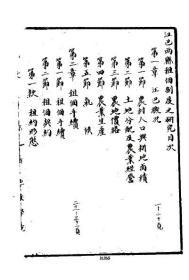 江巴兩縣租佃制度之研究目次
第一章 江巴概況 一—二〇頁
第一節
第二節 農村人口與耕地面積
第三節 土地分配及農業經營
第四節 農地價格
第五節 農業生產
氣候
第二章 租佃手續 二一—三頁
第一節 租佃手續
第二節 租佃契約
第一款 租約形態